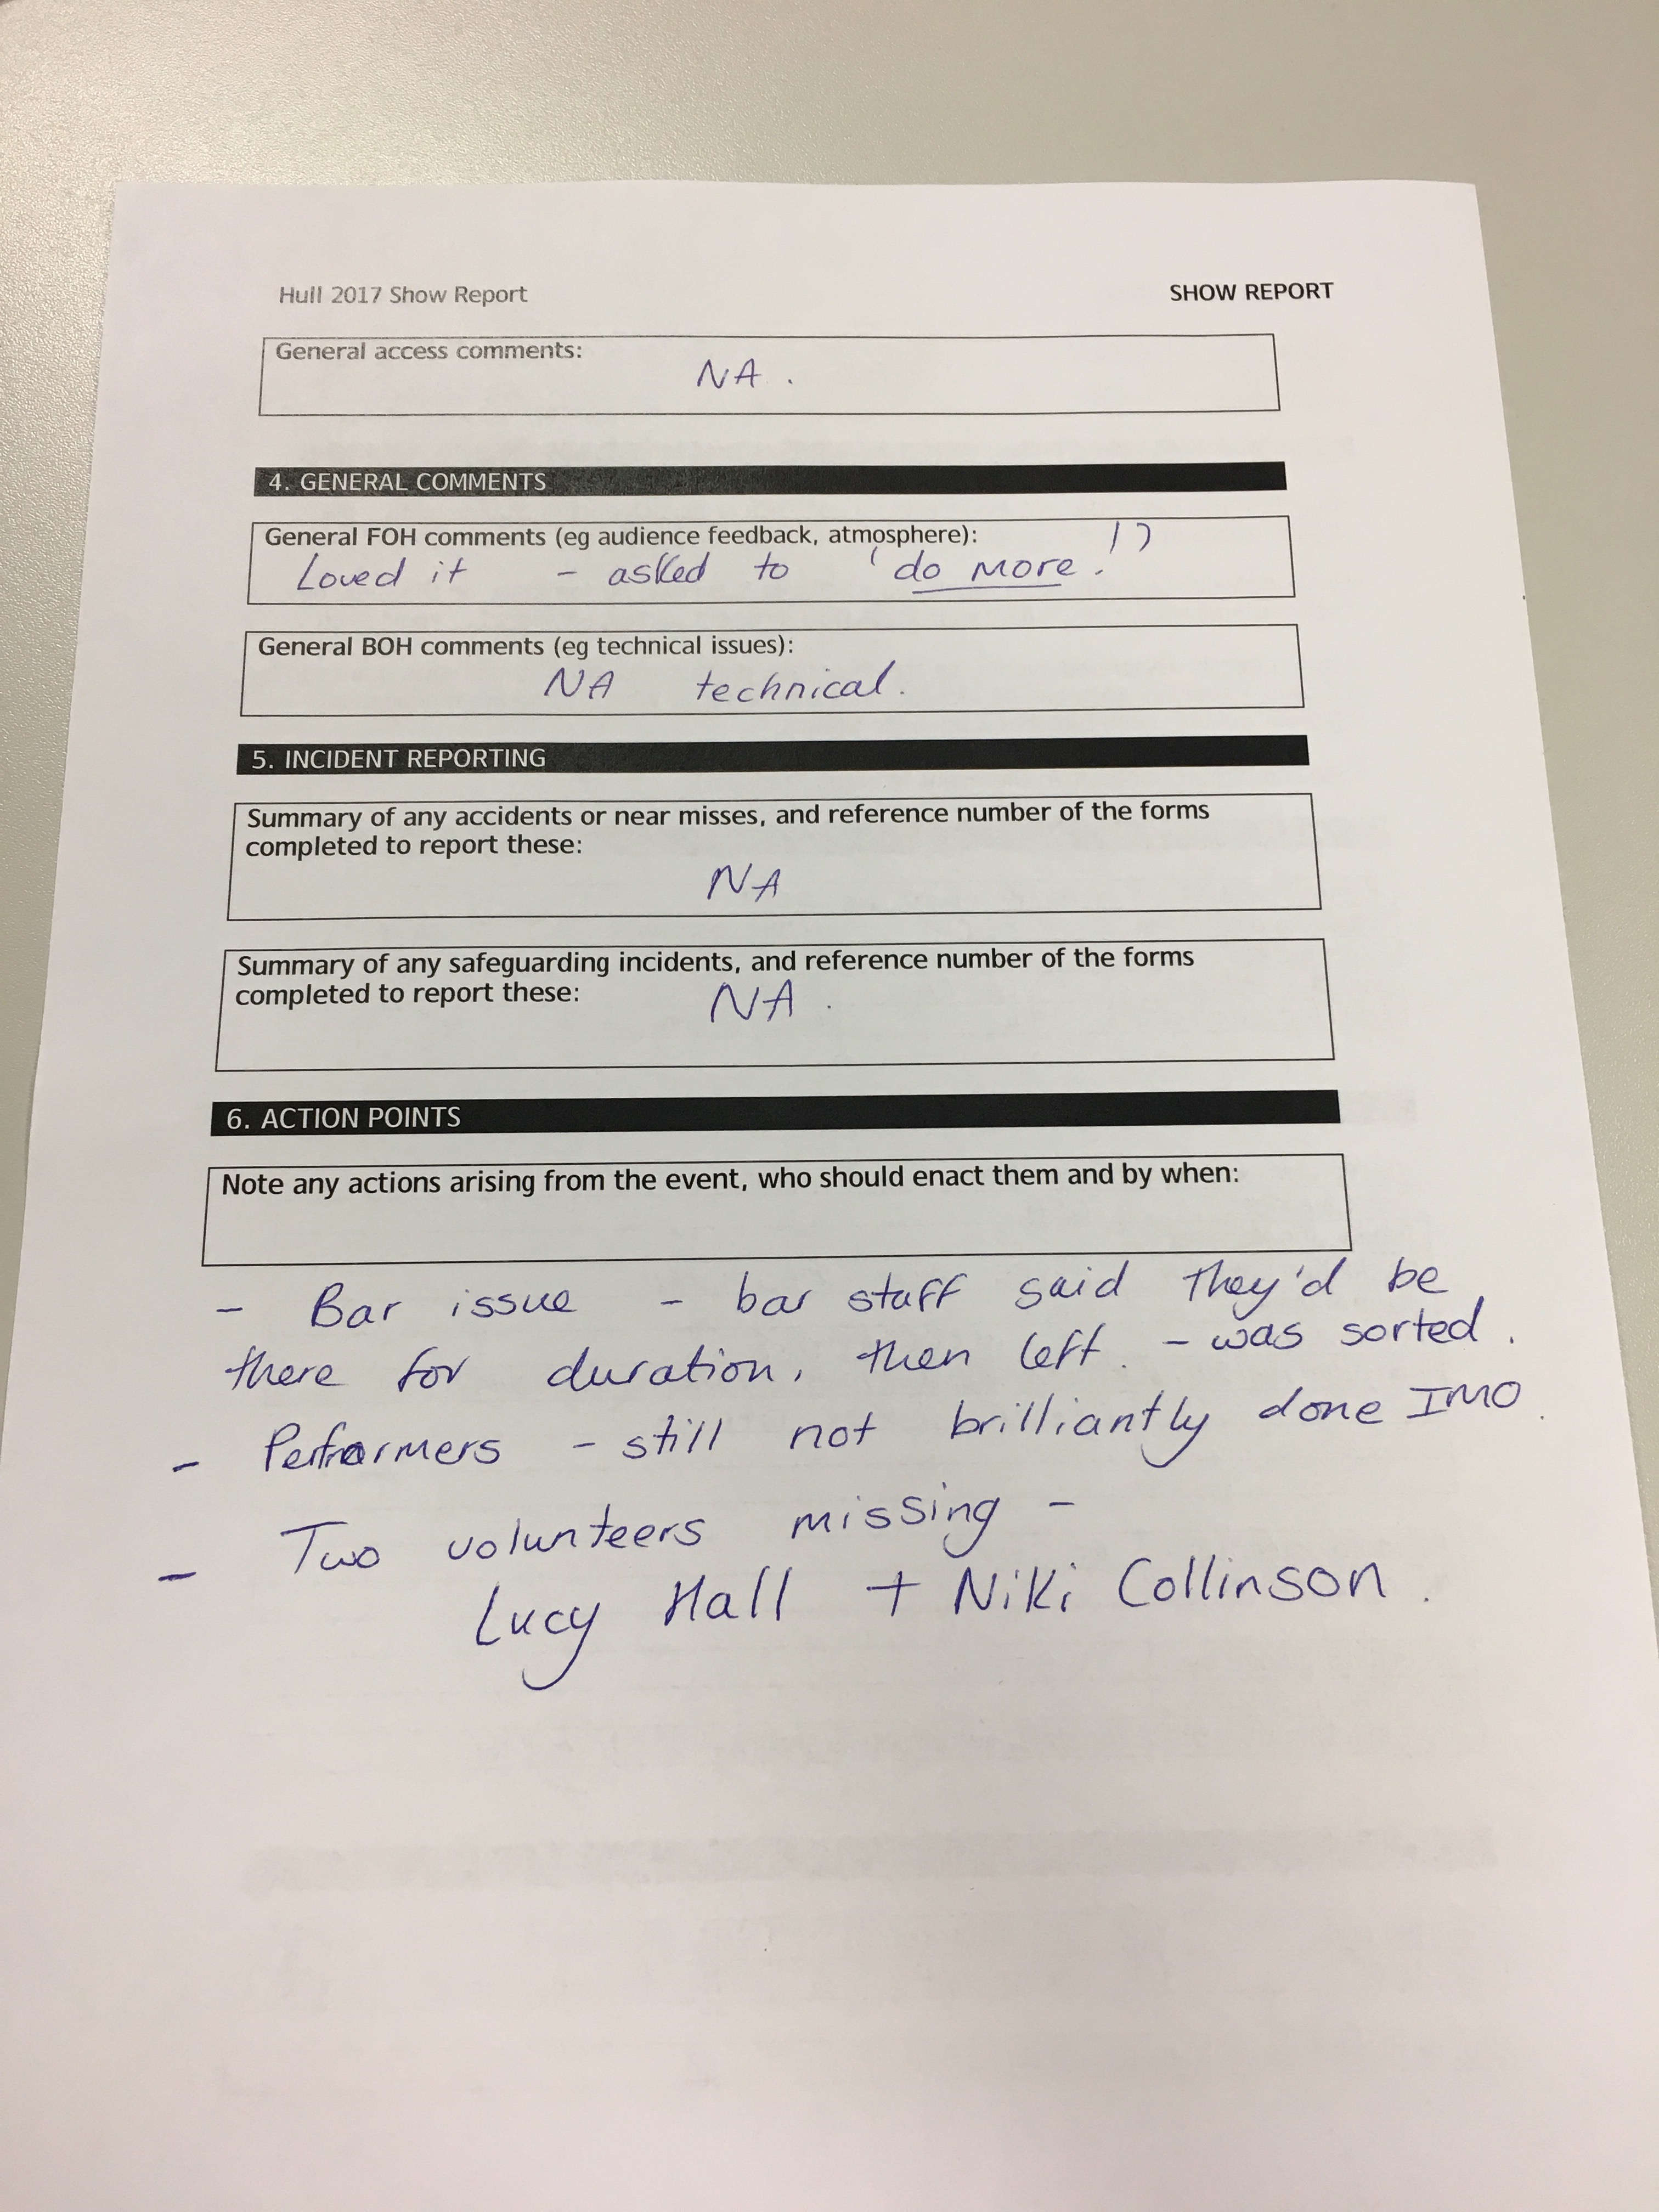 Hull 2017 Show Report SHOW REPORT
General access comments:
NA .
4. GENERAL COMMENTS
General FOH comments (eg audience feedback, atmosphere):
Loved it - asked to 'do more!'
General BOH comments (eg technical issues):
NA technical.
5. INCIDENT REPORTING
Summary of any accidents or near misses, and reference number of the forms
completed to report these:
NA
Summary of any safeguarding incidents, and reference number of the forms
completed to report these:
NA .
6. ACTION POINTS
Note any actions arising from the event, who should enact them and by when:
- Bar issue - bar staff said they'd be
there for duration, then left. - was sorted.
- Performers - still not brilliantly done IMO.
- Two volunteers missing -
Lucy Hall + Niki Collinson.